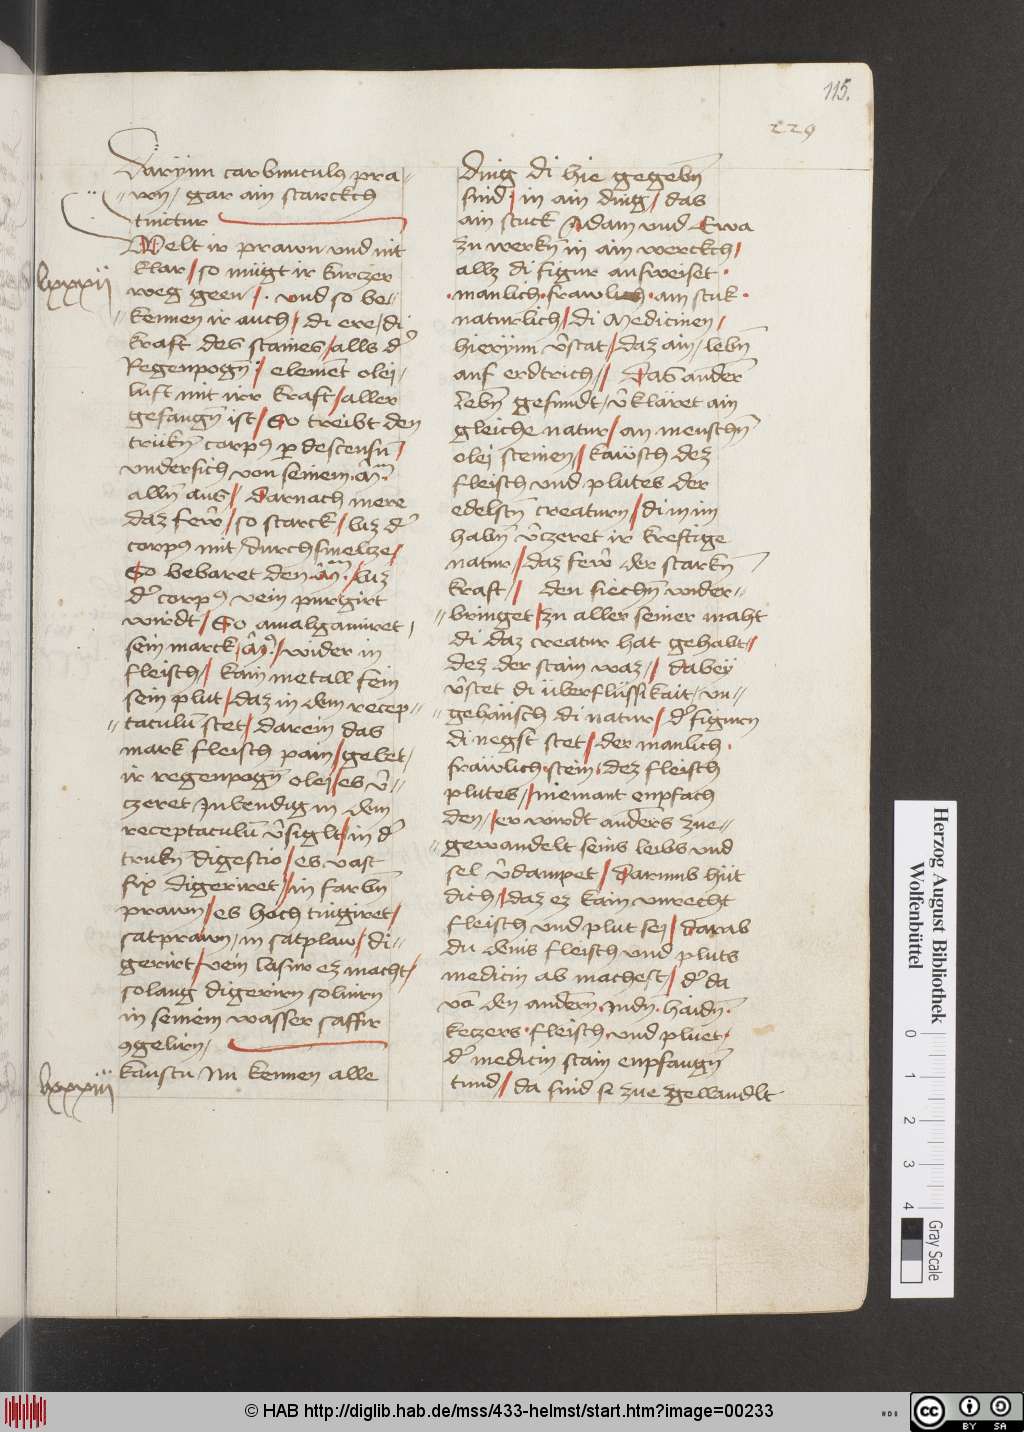 115.
229
Darynn carbunculus pra⸗
⸗wn / gar ain starckch
tinctur
Welt ir prawn vnd nit
lxxxii
klar / so mügt ir kurczer
weg geen / . vnd so be⸗
⸗kennen ir auch / di ere / di
kraft des staines / alls d̉
Regenpogn̄ / elemēt olej /
luft mit irr kraft / aller
gefangn̄ ist / So treibt den
trükn̄ corpꝰ ꝑ descensū /
vndersich, von seinem
alln̄ aus / Darnach mere
daz fewr̄ / so starck / luz d̉
corpꝰ mit / durchsmelcze /
So bebaret den luz
d̉ corpꝰ vein purgirt
wirdt / So amalgamiret /
sein marck / wider in
fleisch / kain metall sein
sein plut / daz in dem recep⸗
⸗taculū stet / darein das
mark fleisch pain / gebet /
ir regenpogn̄ olej / es v̉⸗
czeret Inbendig in dem
receptaculū v̉siglt / in d̉
trukn̄ digestio / es vast
fix digeriret / in farbn̄
prawn / es hoch tingiret /
satprawn / in satplaw / di⸗
gerirt / vein lasur ez macht /
solang digerirn soluirn
in seinem wasser saffir
ꝯgelirn /
lxxxiii
kanstu Nu kennen alle
ding di hie gegebn̄
sind / in ain ding / das
ain stuck Adam vnd Ewa
zu werkn̄ in ain werckch /
allz di figur aufweiset .
. manlich . frawlich . ain stuk .
naturlich / di Medicinen /
hierynn v̉stat / daz ain / lebn̄
auf erdtrich / / Das ander̄
lebn̄ gesundt / v̉klaret ain
gleiche natur / an menschn̄
olej steinen / kawsch dez
fleisch vnd plutes der
edelstn̄ creaturn / di in im
habn̄ v̉czeret ir kreftige
natur / daz fewr̄ der starkn̄
kraft / / den siechn̄ wider⸗
⸗bringet / zu aller seiner maht
di daz creatur hat gehabt /
dez der stain waz / / dabeÿ
v̉stet di überflüssikait / vn⸗
⸗gehäüsch di natur / d̉ figurn
di negst stet / der manlich .
fräwlich . stein . dez fleisch
plutes / niemant enpfach
den / er wirdt anders zue⸗
⸗gewandelt seins leibs vnd
sel v̉dampet / Darumb hüt
dich / daz ez kain vnrecht
fleisch vnd plut sej / darab
du deins fleisch vnd pluts
medicin ab machest / d̉ da
vō den andern̄ . Judn̄ . haidn̄ .
keczers . fleisch vnd pluet .
d̉ medicin stain enpfangn̄
tund / da sind si zue zgewandlt
Herzog August Bibliothek
Wolfenbüttel
0
1
2
3
4
Gray Scale
© HAB http://diglib.hab.de/mss/433-helmst/start.htm?image=00233
HAB
cc
BY SA